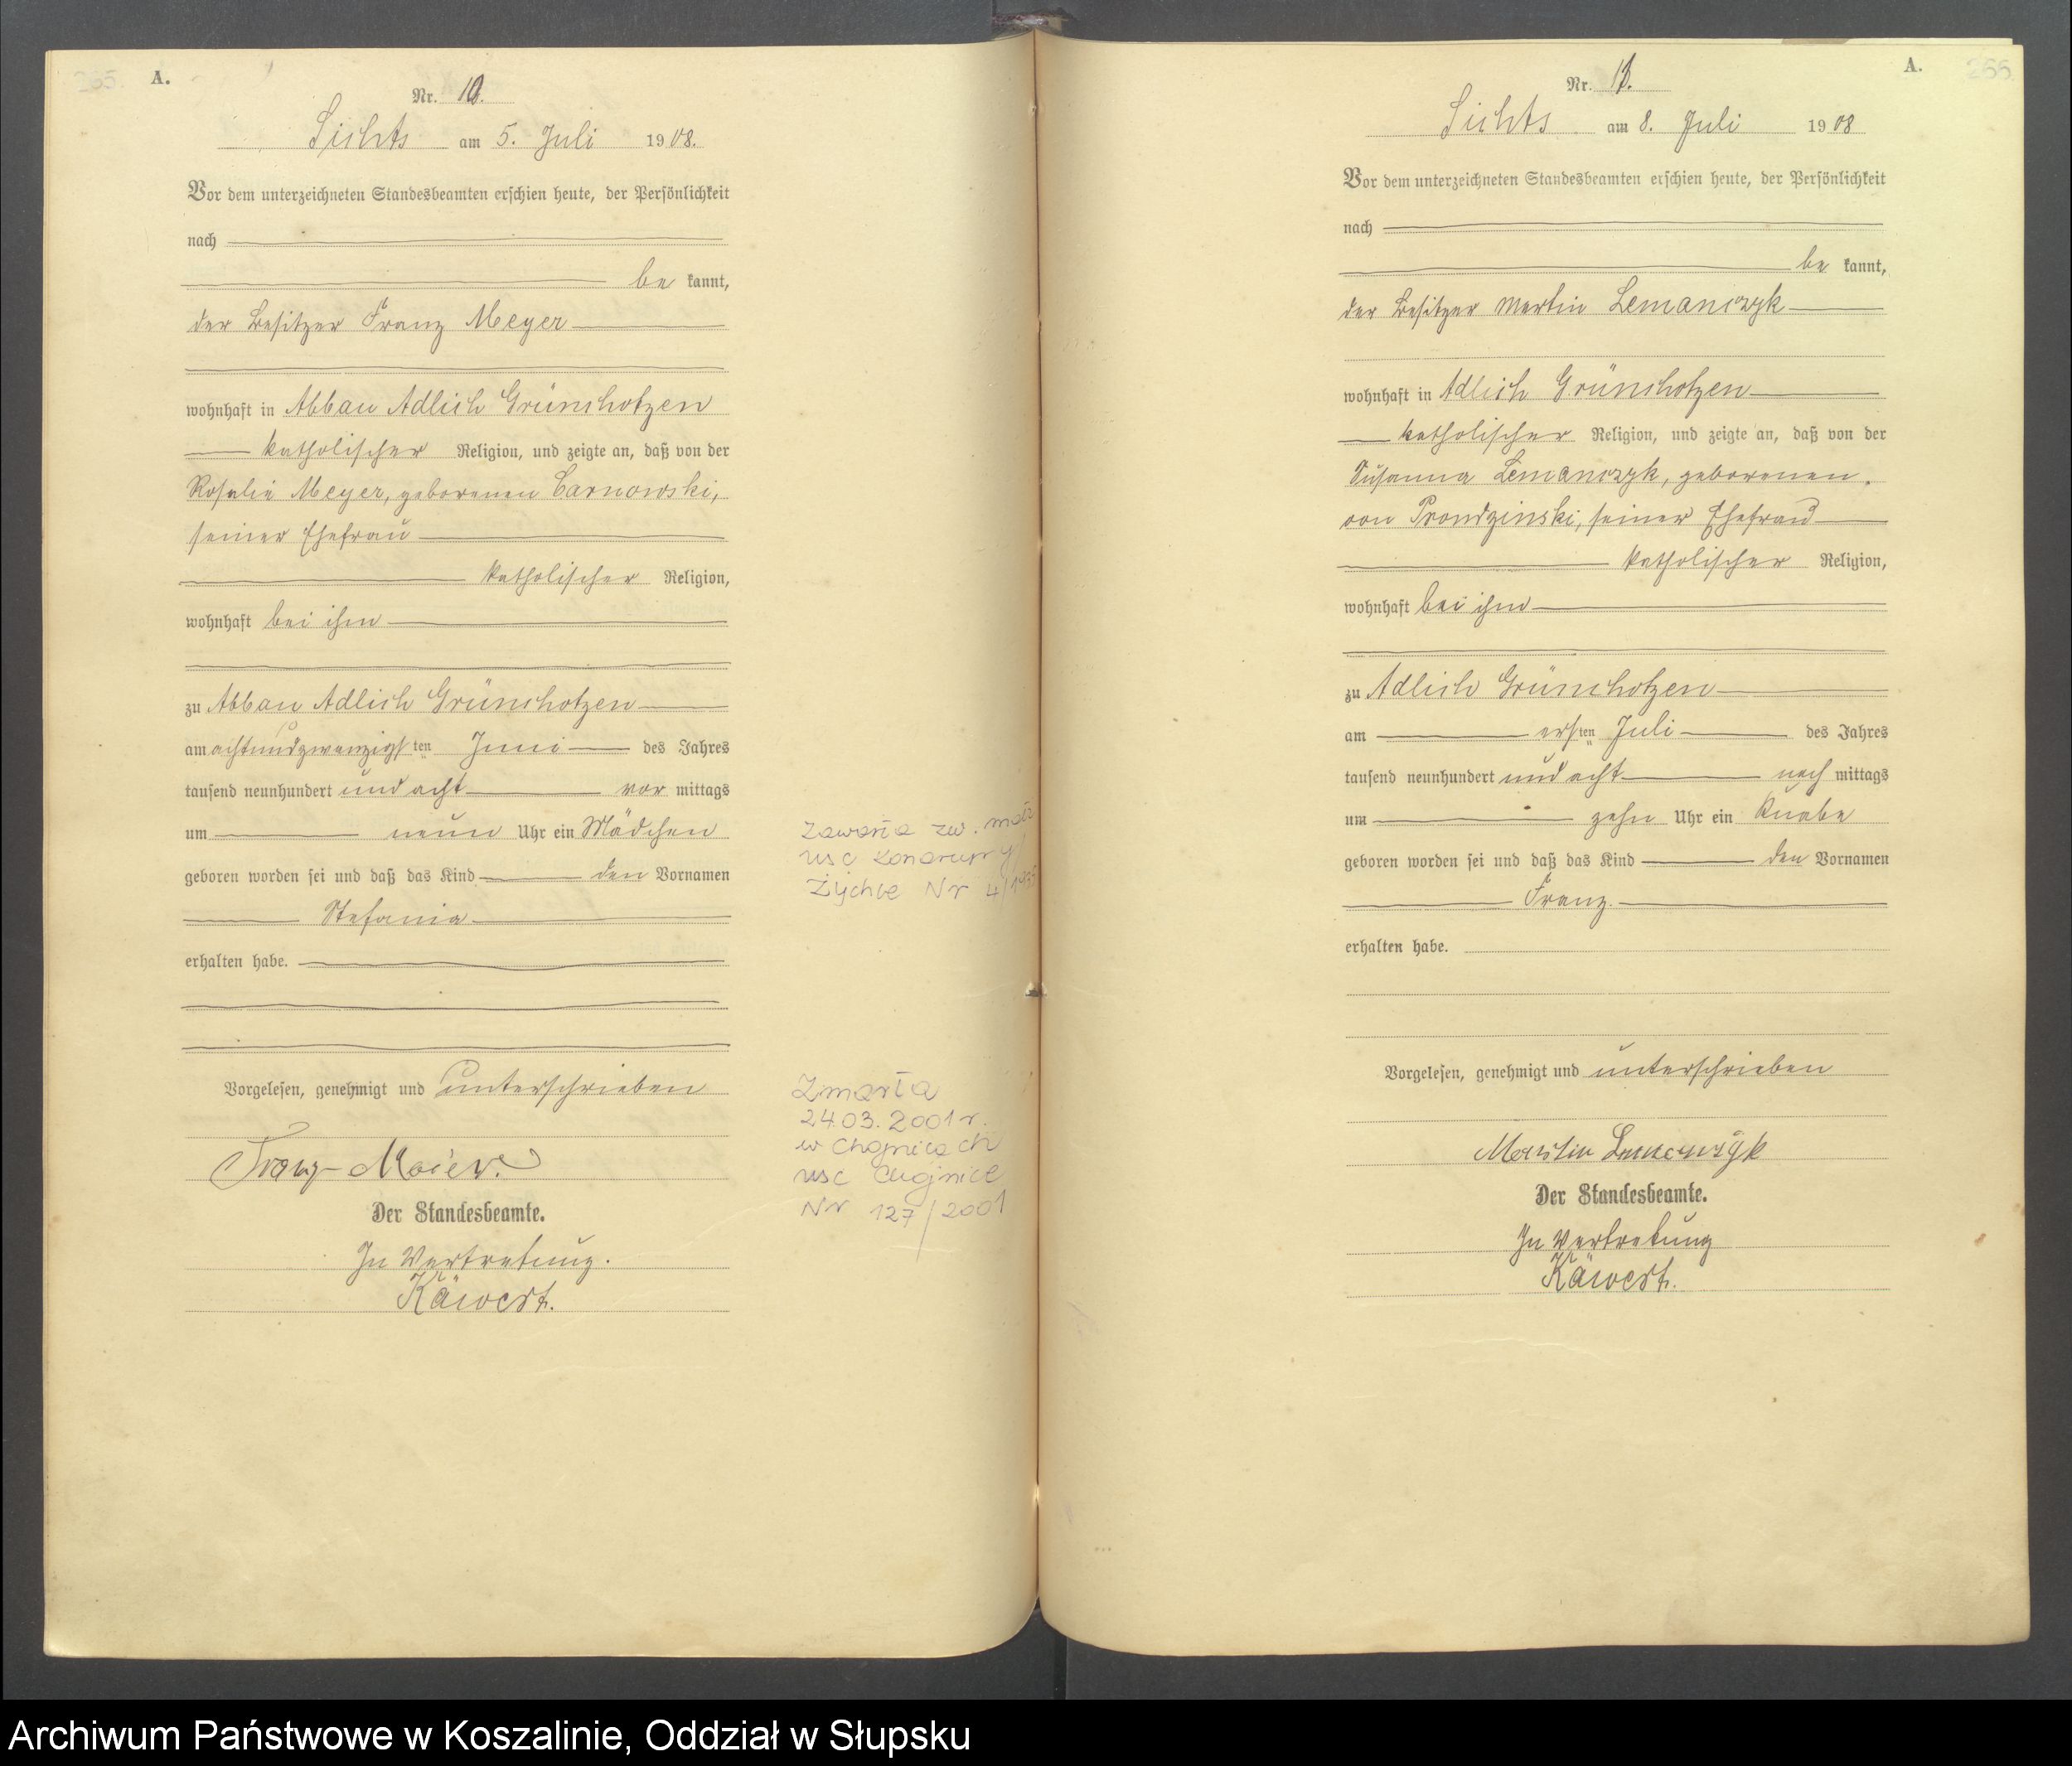 A.
Nr. 10.
Sichts am 5. Juli 1908.
Vor dem unterzeichneten Standesbeamten erschien heute, der Persönlichkeit
nach
be kannt,
der Besitzer Franz Meyer
wohnhaft in Abbau Adlich Grünchotzen
katholischer Religion, und zeigte an, daß von der
Rosalie Meyer, geborenen Carnowski,
seiner Ehefrau
katholischer Religion,
wohnhaft bei ihm
zu Abbau Adlich Grünchotzen
am achtundzwanzigsten Juni des Jahres
tausend neunhundert und acht vor mittags
um neun Uhr ein Mädchen
geboren worden sei und daß das Kind den Vornamen
Stefania
erhalten habe.
Vorgelesen, genehmigt und unterschrieben
Franz Maier.
Der Standesbeamte.
In Vertretung.
Käwert.
Zawarła zw. małż
usc Konarzyny
Żychce Nr 4/
Zmarła
24.03.2001 r.
w Chojnicach
usc Chojnice
Nr 127/2001
A. 266
Nr.
Sichts am 8. Juli 1908
Vor dem unterzeichneten Standesbeamten erschien heute, der Persönlichkeit
nach
be kannt,
der Besitzer Martin Lemanczyk
wohnhaft in Adlich Grünchotzen
katholischer Religion, und zeigte an, daß von der
Susanna Lemanczyk, geborenen
von Prondzinski, seiner Ehefrau
katholischer Religion,
wohnhaft bei ihm
zu Adlich Grünchotzen
am ersten Juli des Jahres
tausend neunhundert und acht nach mittags
um zehn Uhr ein Knabe
geboren worden sei und daß das Kind den Vornamen
Franz.
erhalten habe.
Vorgelesen, genehmigt und unterschrieben
Martin Lemanczyk
Der Standesbeamte.
In Vertretung
Käwert.
Archiwum Państwowe w Koszalinie, Oddział w Słupsku